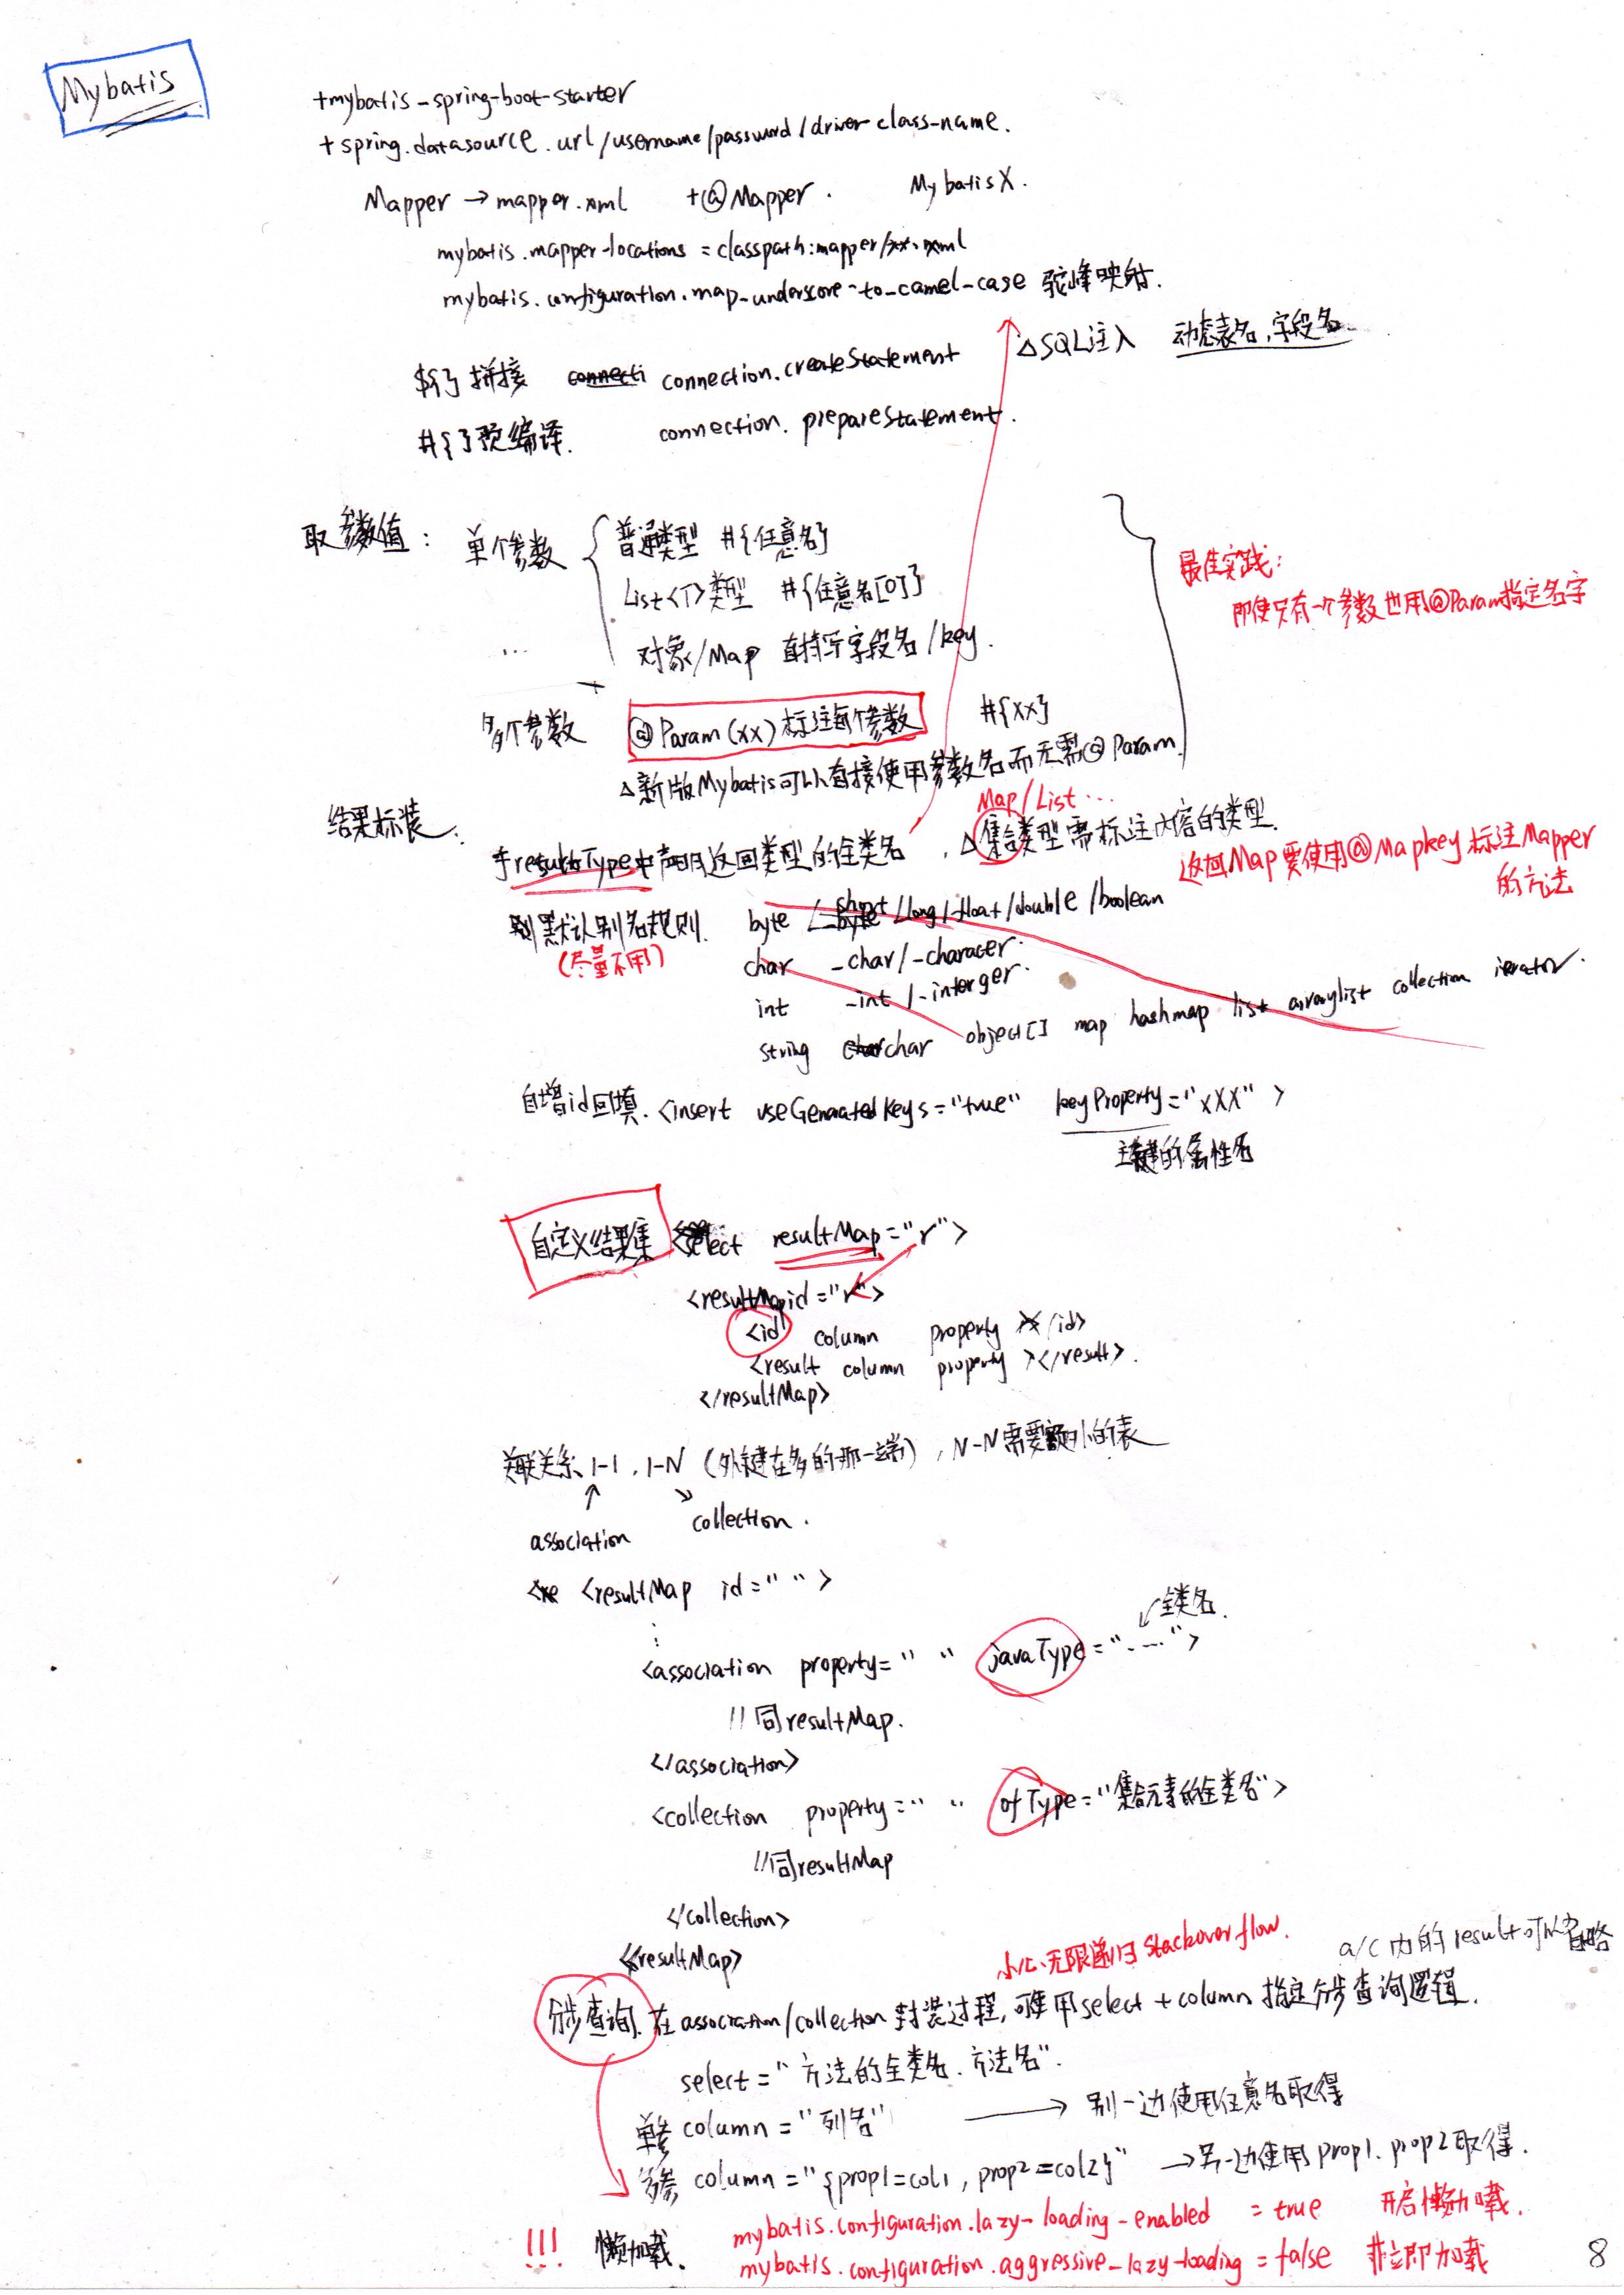 Mybatis
+mybatis-spring-boot-starter
+spring.datasource.url/username/password/driver-class-name.
Mapper → mapper.xml +@Mapper. MybatisX.
mybatis.mapper-locations = classpath:mapper/**.xml
mybatis.configuration.map-underscore-to-camel-case 驼峰映射.
△SQL注入 动态表名,字段名
${}拼接 connecti connection.createStatement
#{}预编译. connection.prepareStatement.
取参数值: 单个参数 { 普通类型 #{任意名}
List<T>类型 #{任意名[0]}
对象/Map 直接写字段名/key.
...
最佳实践:
即使只有一个参数也用@Param指定名字
多个参数 @Param(xx)标注每个参数 #{xx}
△新版Mybatis可以直接使用参数名而无需@Param.
结果标装.
于resultType中声明返回类型的全类名, △集合类型需标注内容的类型.
Map/List...
返回Map要使用@Mapkey标注Mapper
的方法
默认别名规则. byte /short/long/float/double/boolean
(尽量不用)
char _char/-character.
int _int/-interger.
string char object[] map hashmap list arraylist collection iterator.
自增id回填. <insert useGeneratedKeys="true" keyProperty="xxx" >
主键的属性名
自定义结果集 <select resultMap="r">
<resultMap id="r">
<id column property ></id>
<result column property ></result>.
</resultMap>
关联关系、1-1, 1-N (外键在多的那一端), N-N需要额外的表
↑ ↘
association collection.
<re <resultMap id=" ">
⋮
全类名.
<association property=" " javaType="....">
//同resultMap.
</association>
<collection property=" " ofType="集合元素的全类名">
//同resultMap
</collection>
</resultMap>
小心无限递归 Stackover flow.
a/c内的result可以省略
分步查询. 在association/collection封装过程,可使用select + column 指定分步查询逻辑.
select="方法的全类名.方法名".
单参 column="列名" → 别一边使用任意名取得
多参 column="{prop1=col1, prop2=col2}" → 另一边使用prop1. prop2取得.
!!! 懒加载. mybatis.configuration.lazy-loading-enabled = true 开启懒加载.
mybatis.configuration.aggressive-lazy-loading = false 非立即加载
8